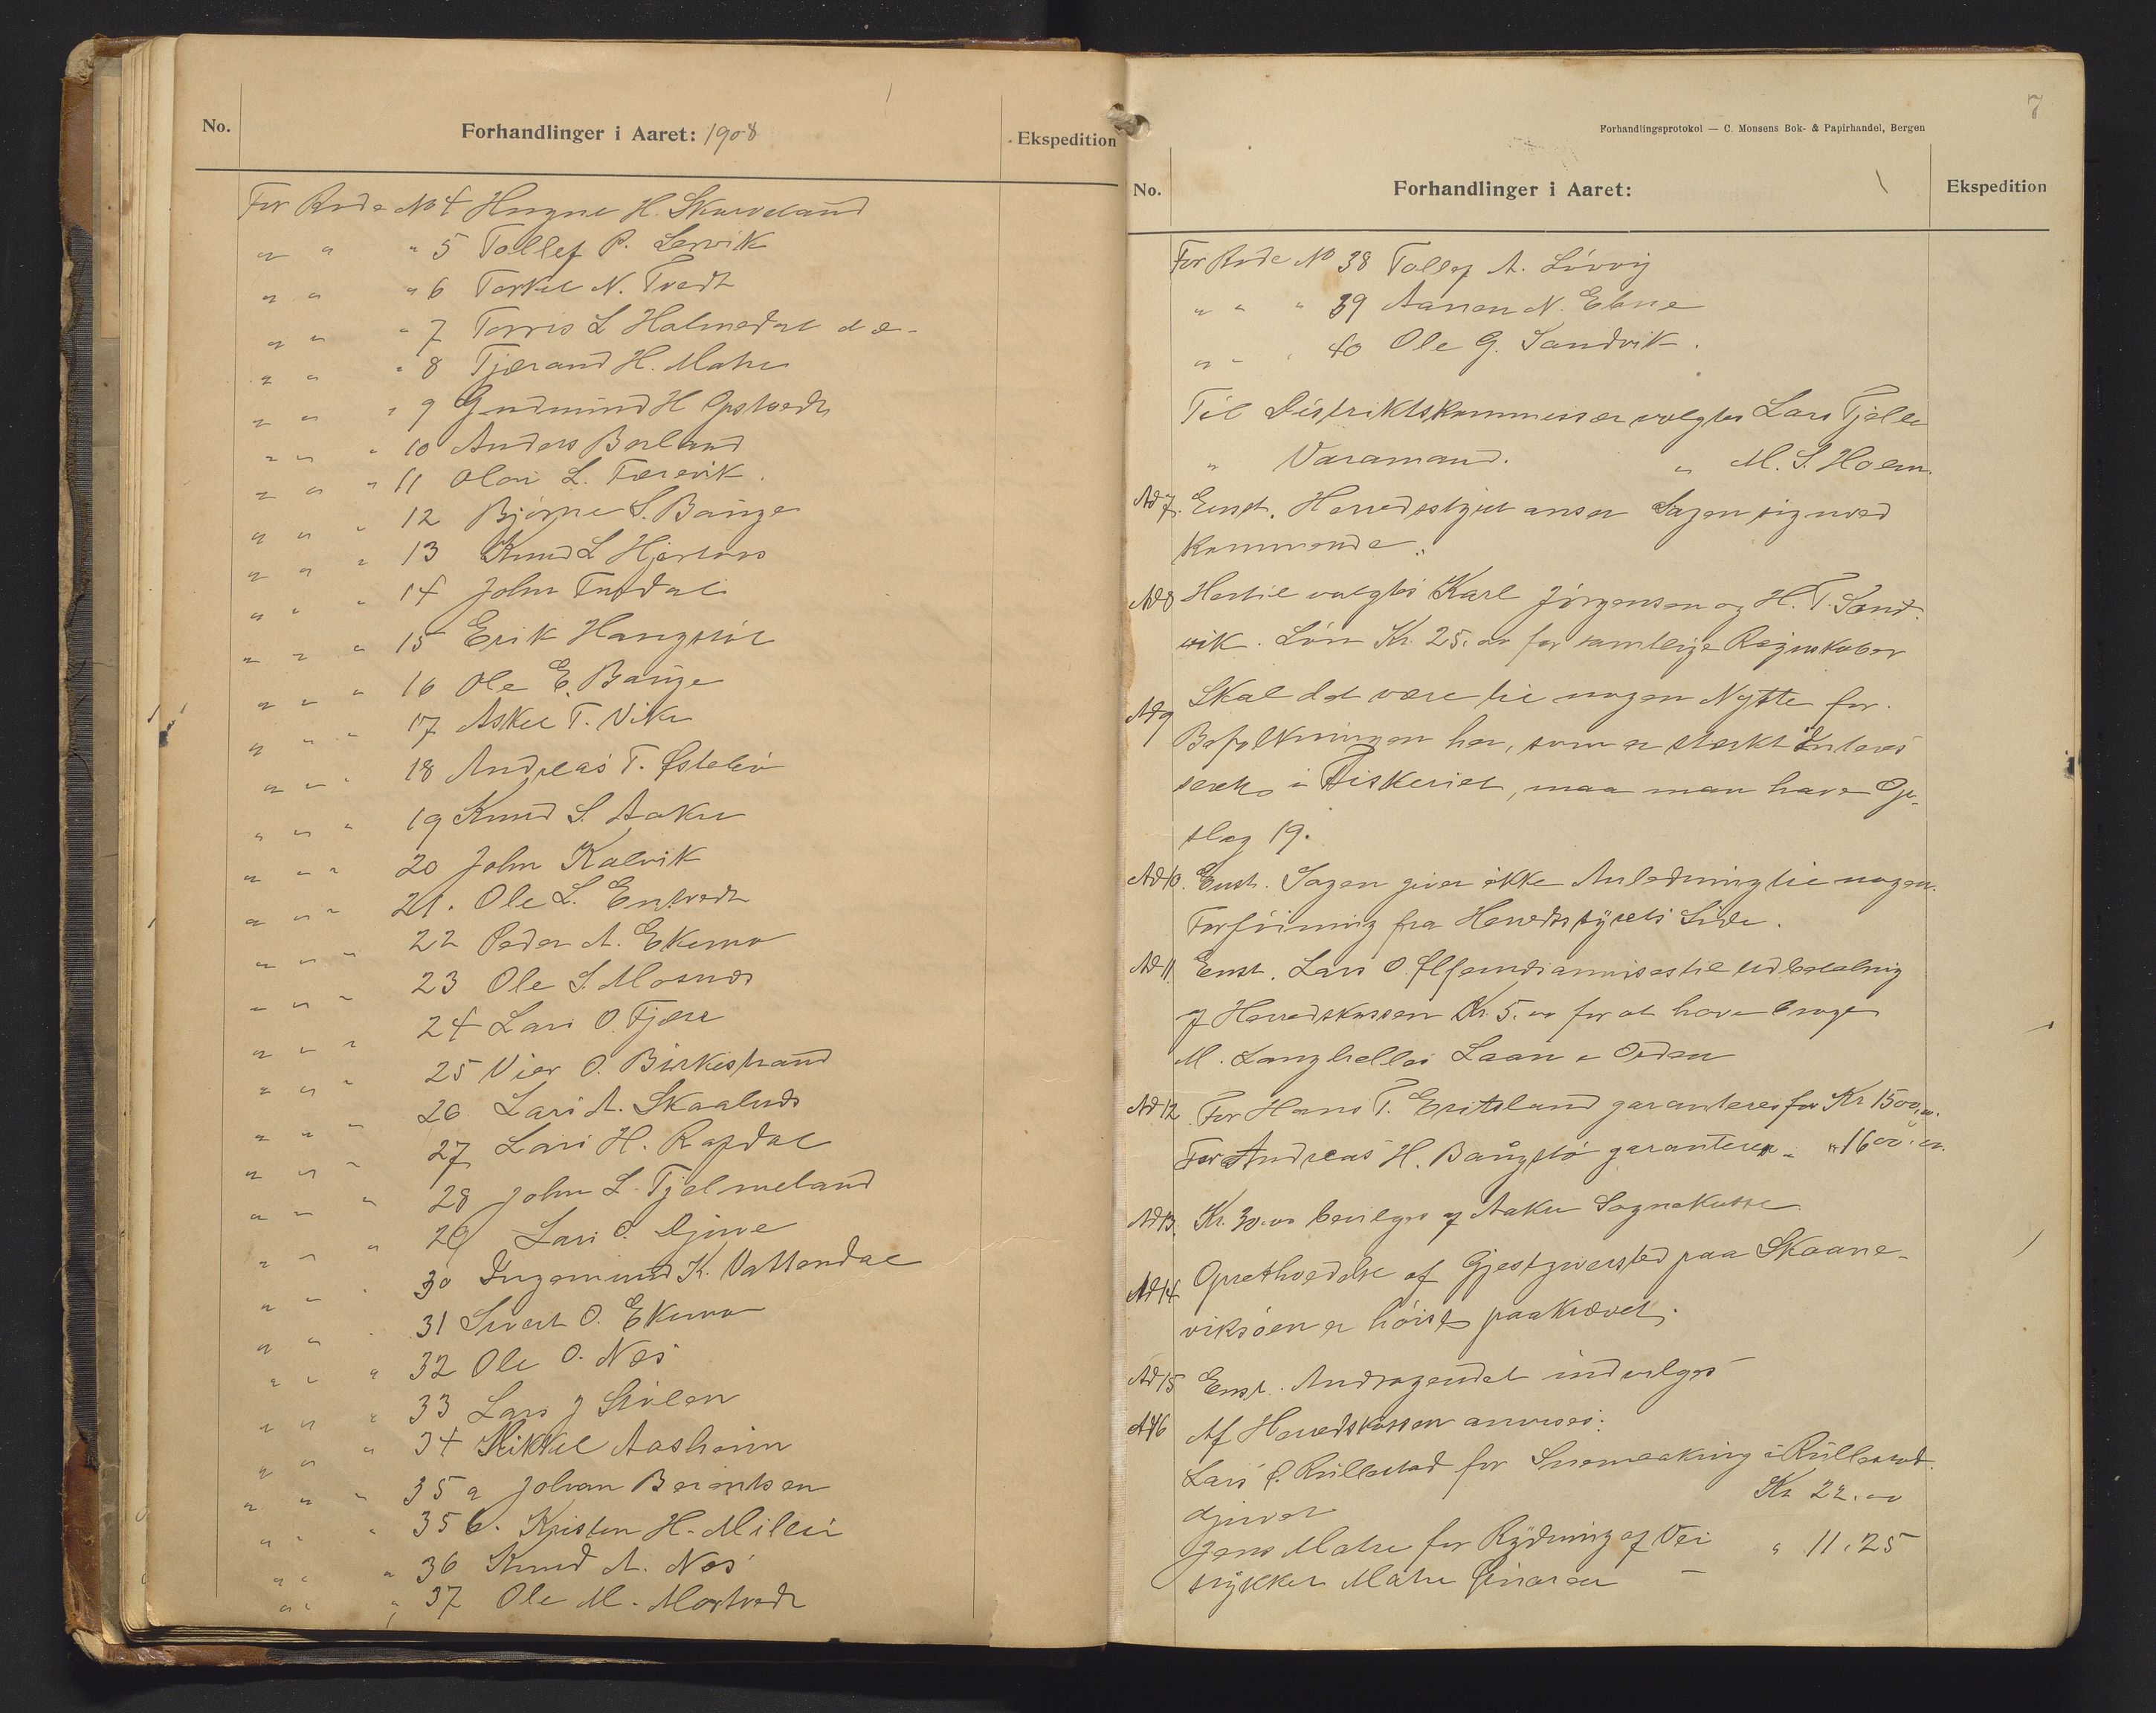 No. Forhandlinger i Aaret: 1908 Ekspedition
For Rode No 4 Hogne H. Skarveland
" " " 5 Tollef P. Lervik
" " " 6 Torkel N. Tvedt
" " " 7 Torris L Holmedal d æ-
" " " 8 Tjærand H. Matre
" " " 9 Gudmund H Opstvedt
" " " 10 Anders Berland
" " " 11 Olai L. Færevik.
" " " 12 Bjørne S. Bauge
" " " 13 Knud L Hjertnes
" " " 14 John Tufdal
" " " 15 Erik Haugstøl
" " " 16 Ole E. Bauge
" " " 17 Askel T. Vika
" " " 18 Andreas T. Østebø
" " " 19 Knud S. Aakre
" " " 20 John Kalvik
" " " 21. Ole L. Entvedt
" " " 22 Peder A. Ekemo
" " " 23 Ole S. Mosnes
" " " 24 Lars O. Fjære
" " " 25 Vier O. Birkestrand
" " " 26 Lars A. Skaalnes
" " " 27 Lars H. Rafdal
" " " 28 John L. Tjelmeland
" " " 29 Lars O. Djuve
" " " 30 Ingemund K. Vattendal
" " " 31 Sivert O. Ekemo
" " " 32 Ole O. Nes
" " " 33 Lars J Støle
" " " 34 Mikkel Aasheim
" " " 35 a Johan Berentsen
" " " 35 b. Kristen H. Milje
" " " 36 Knud A. Nes
" " " 37 Ole M. Mortvedt
7
Forhandlingsprotokol — C. Monsens Bok- & Papirhandel, Bergen
No. Forhandlinger i Aaret: Ekspedition
For Rode No 38 Tollef A. Løvvig
" " " 39 Aanen N. Ebne
" " " 40 Ole G. Sandvik.
Til Distriktskommissær valgtes Lars Fjelle
" Varamand. " M. S. Holm.
Ad 7. Enst. Herredsstyret anser Sagen sig uved
kommende.
Ad 8 Hertil valgtes Karl Jørgensen og H. T. Sand.
vik. Løn Kr. 25.00 for samtlige Regnskaber
Ad 9 Skal det være til nogen Nytte for
Befolkningen her, som er sterkt Interes
seret i Fiskeriet, maa man have Op-
slag 19.
Ad 10. Enst. Sagen giver ikke Anledning til nogen
Forføining fra Herredsstyrets Side.
Ad 11 Enst. Lars O. Ølfernes anvises til Udbetaling
af Herredskassen Kr. 5.00 for at have bragt
M. Langhelles Laan i Orden
Ad 12 For Hans T. Eritsland garanteres for Kr 1500,00.
For Andreas H. Baugstø garanteres " " 1600.00.
Ad 13. Kr. 30.00 bevilges af Aakre Sognekasse
Ad 14 Opretholdelse af Gjestgiversted paa Skaane-
viksøen er høist paakrævet.
Ad 15 Enst. Andragendet indvilges
Ad 16 Af Herredskassen anvises:
Lars P. Rullestad for Snemaaking i Rullestad
djuvet Kr 22.00
Jens Matre for Rydning af Vei " 11.25
stykket Matre –